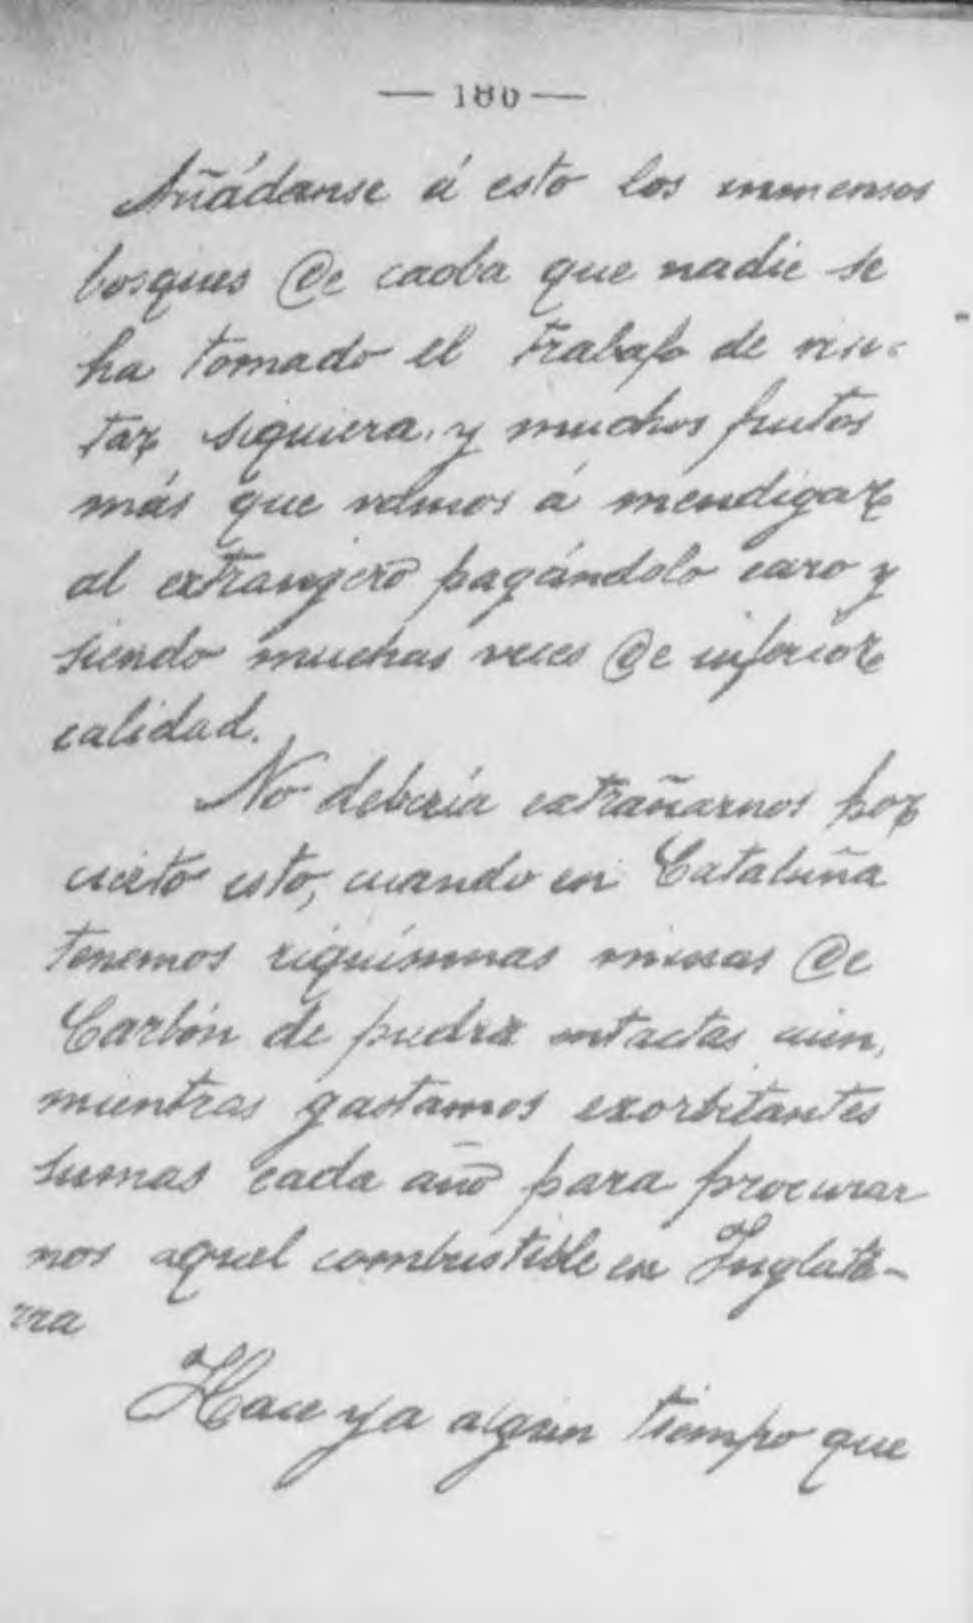 — 186 —
Añádanse á esto los inmensos
bosques de caoba que nadie se
ha tomado el trabajo de visi-
tar siquiera, y muchos frutos
más que vamos á mendigar
al extrangero pagándolo caro y
siendo muchas veces de inferior
calidad.
No debería extrañarnos por
cierto esto, cuando en Cataluña
tenemos riquísimas minas de
Carbón de piedra intactas aún,
mientras gastamos exorbitantes
sumas cada año para procurar
nos aquel combustible en Inglate-
rra
Hace ya algún tiempo que